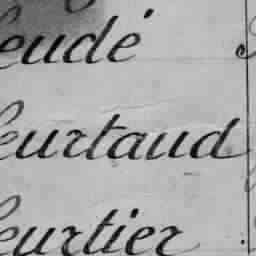 eudé
eurtaud
eurtier